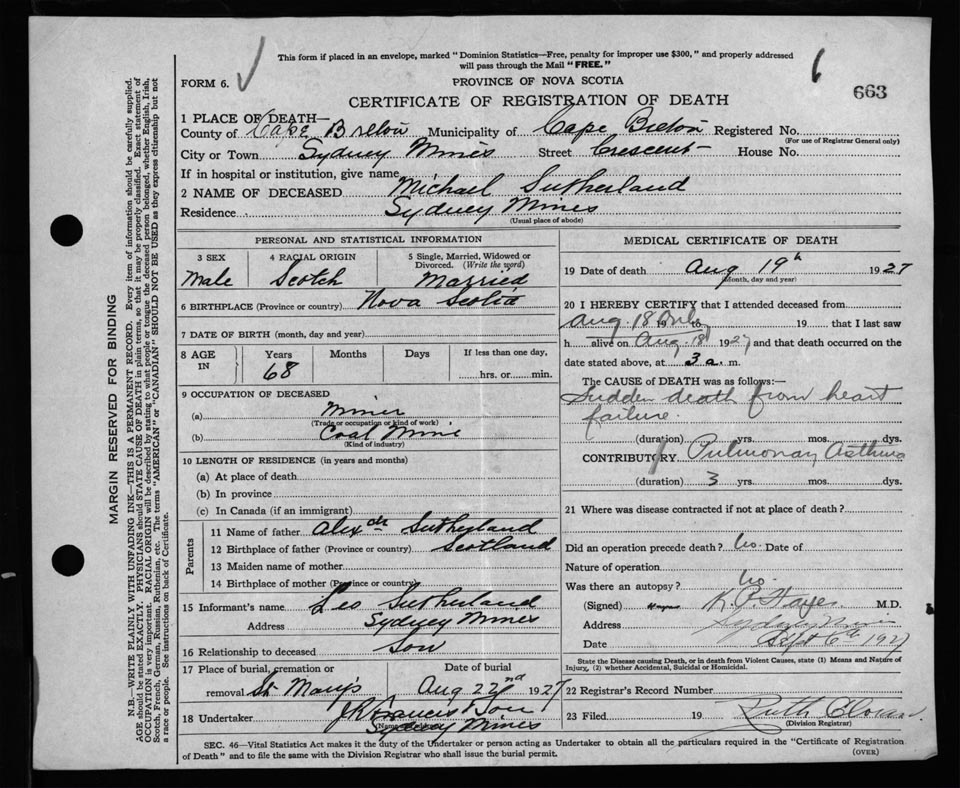 This form if placed in an envelope, marked "Dominion Statistics—Free, penalty for improper use $300," and properly addressed
will pass through the Mail "FREE."
FORM 6.
PROVINCE OF NOVA SCOTIA
663
CERTIFICATE OF REGISTRATION OF DEATH
1 PLACE OF DEATH—
County of Cape Breton Municipality of Cape Breton Registered No.
(For use of Registrar General only)
City or Town Sydney Mines Street Crescent House No.
If in hospital or institution, give name
2 NAME OF DECEASED Michael Sutherland
Residence Sydney Mines
(Usual place of abode)
PERSONAL AND STATISTICAL INFORMATION
3 SEX 4 RACIAL ORIGIN 5 Single, Married, Widowed or
Divorced. (Write the word)
Male Scotch Married
6 BIRTHPLACE (Province or country) Nova Scotia
7 DATE OF BIRTH (month, day and year)
8 AGE IN Years Months Days If less than one day,
68 hrs. or min.
9 OCCUPATION OF DECEASED
(a) Miner
(Trade or occupation or kind of work)
(b) Coal Mine
(Kind of industry)
10 LENGTH OF RESIDENCE (in years and months)
(a) At place of death
(b) In province
(c) In Canada (if an immigrant)
Parents
11 Name of father Alexdr Sutherland
12 Birthplace of father (Province or country) Scotland
13 Maiden name of mother
14 Birthplace of mother (Province or country)
15 Informant's name Leo Sutherland
Address Sydney Mines
16 Relationship to deceased Son
17 Place of burial, cremation or Date of burial
removal St. Mary's Aug 22nd 1927
18 Undertaker Francis & Son
Sydney Mines
MEDICAL CERTIFICATE OF DEATH
19 Date of death Aug 19th 1927
(Month, day and year)
20 I HEREBY CERTIFY that I attended deceased from
Aug. 18 19 Only to 19 that I last saw
h alive on Aug. 18 1927 and that death occurred on the
date stated above, at 3 a. m.
The CAUSE of DEATH was as follows:—
Sudden death from heart
failure
(duration) yrs. mos. dys.
CONTRIBUTORY Pulmonary Asthma
(duration) 3 yrs. mos. dys.
21 Where was disease contracted if not at place of death?
Did an operation precede death? No. Date of
Nature of operation
Was there an autopsy? No.
(Signed) Hayes M.D.
Address Sydney Mines
Date Sept 6th 1927
State the Disease causing Death, or in death from Violent Causes, state (1) Means and Nature of
Injury, (2) whether Accidental, Suicidal or Homicidal.
22 Registrar's Record Number
23 Filed 19 Ruth
(Division Registrar)
SEC. 46—Vital Statistics Act makes it the duty of the Undertaker or person acting as Undertaker to obtain all the particulars required in the "Certificate of Registration
of Death" and to file the same with the Division Registrar who shall issue the burial permit.
(OVER)
MARGIN RESERVED FOR BINDING
N.B.—WRITE PLAINLY WITH UNFADING INK—THIS IS A PERMANENT RECORD. Every item of information should be carefully supplied.
AGE should be stated EXACTLY. PHYSICIANS should STATE CAUSE OF DEATH in plain terms, so that it may be properly classified. Exact statement of
OCCUPATION is very important. RACIAL ORIGIN will be described by stating to what people or tongue the deceased person belonged, whether English, Irish,
Scotch, French, German, Russian, Ruthenian, etc. The terms "AMERICAN" or "CANADIAN" SHOULD NOT BE USED as they express citizenship but not
a race or people. See instructions on back of Certificate.